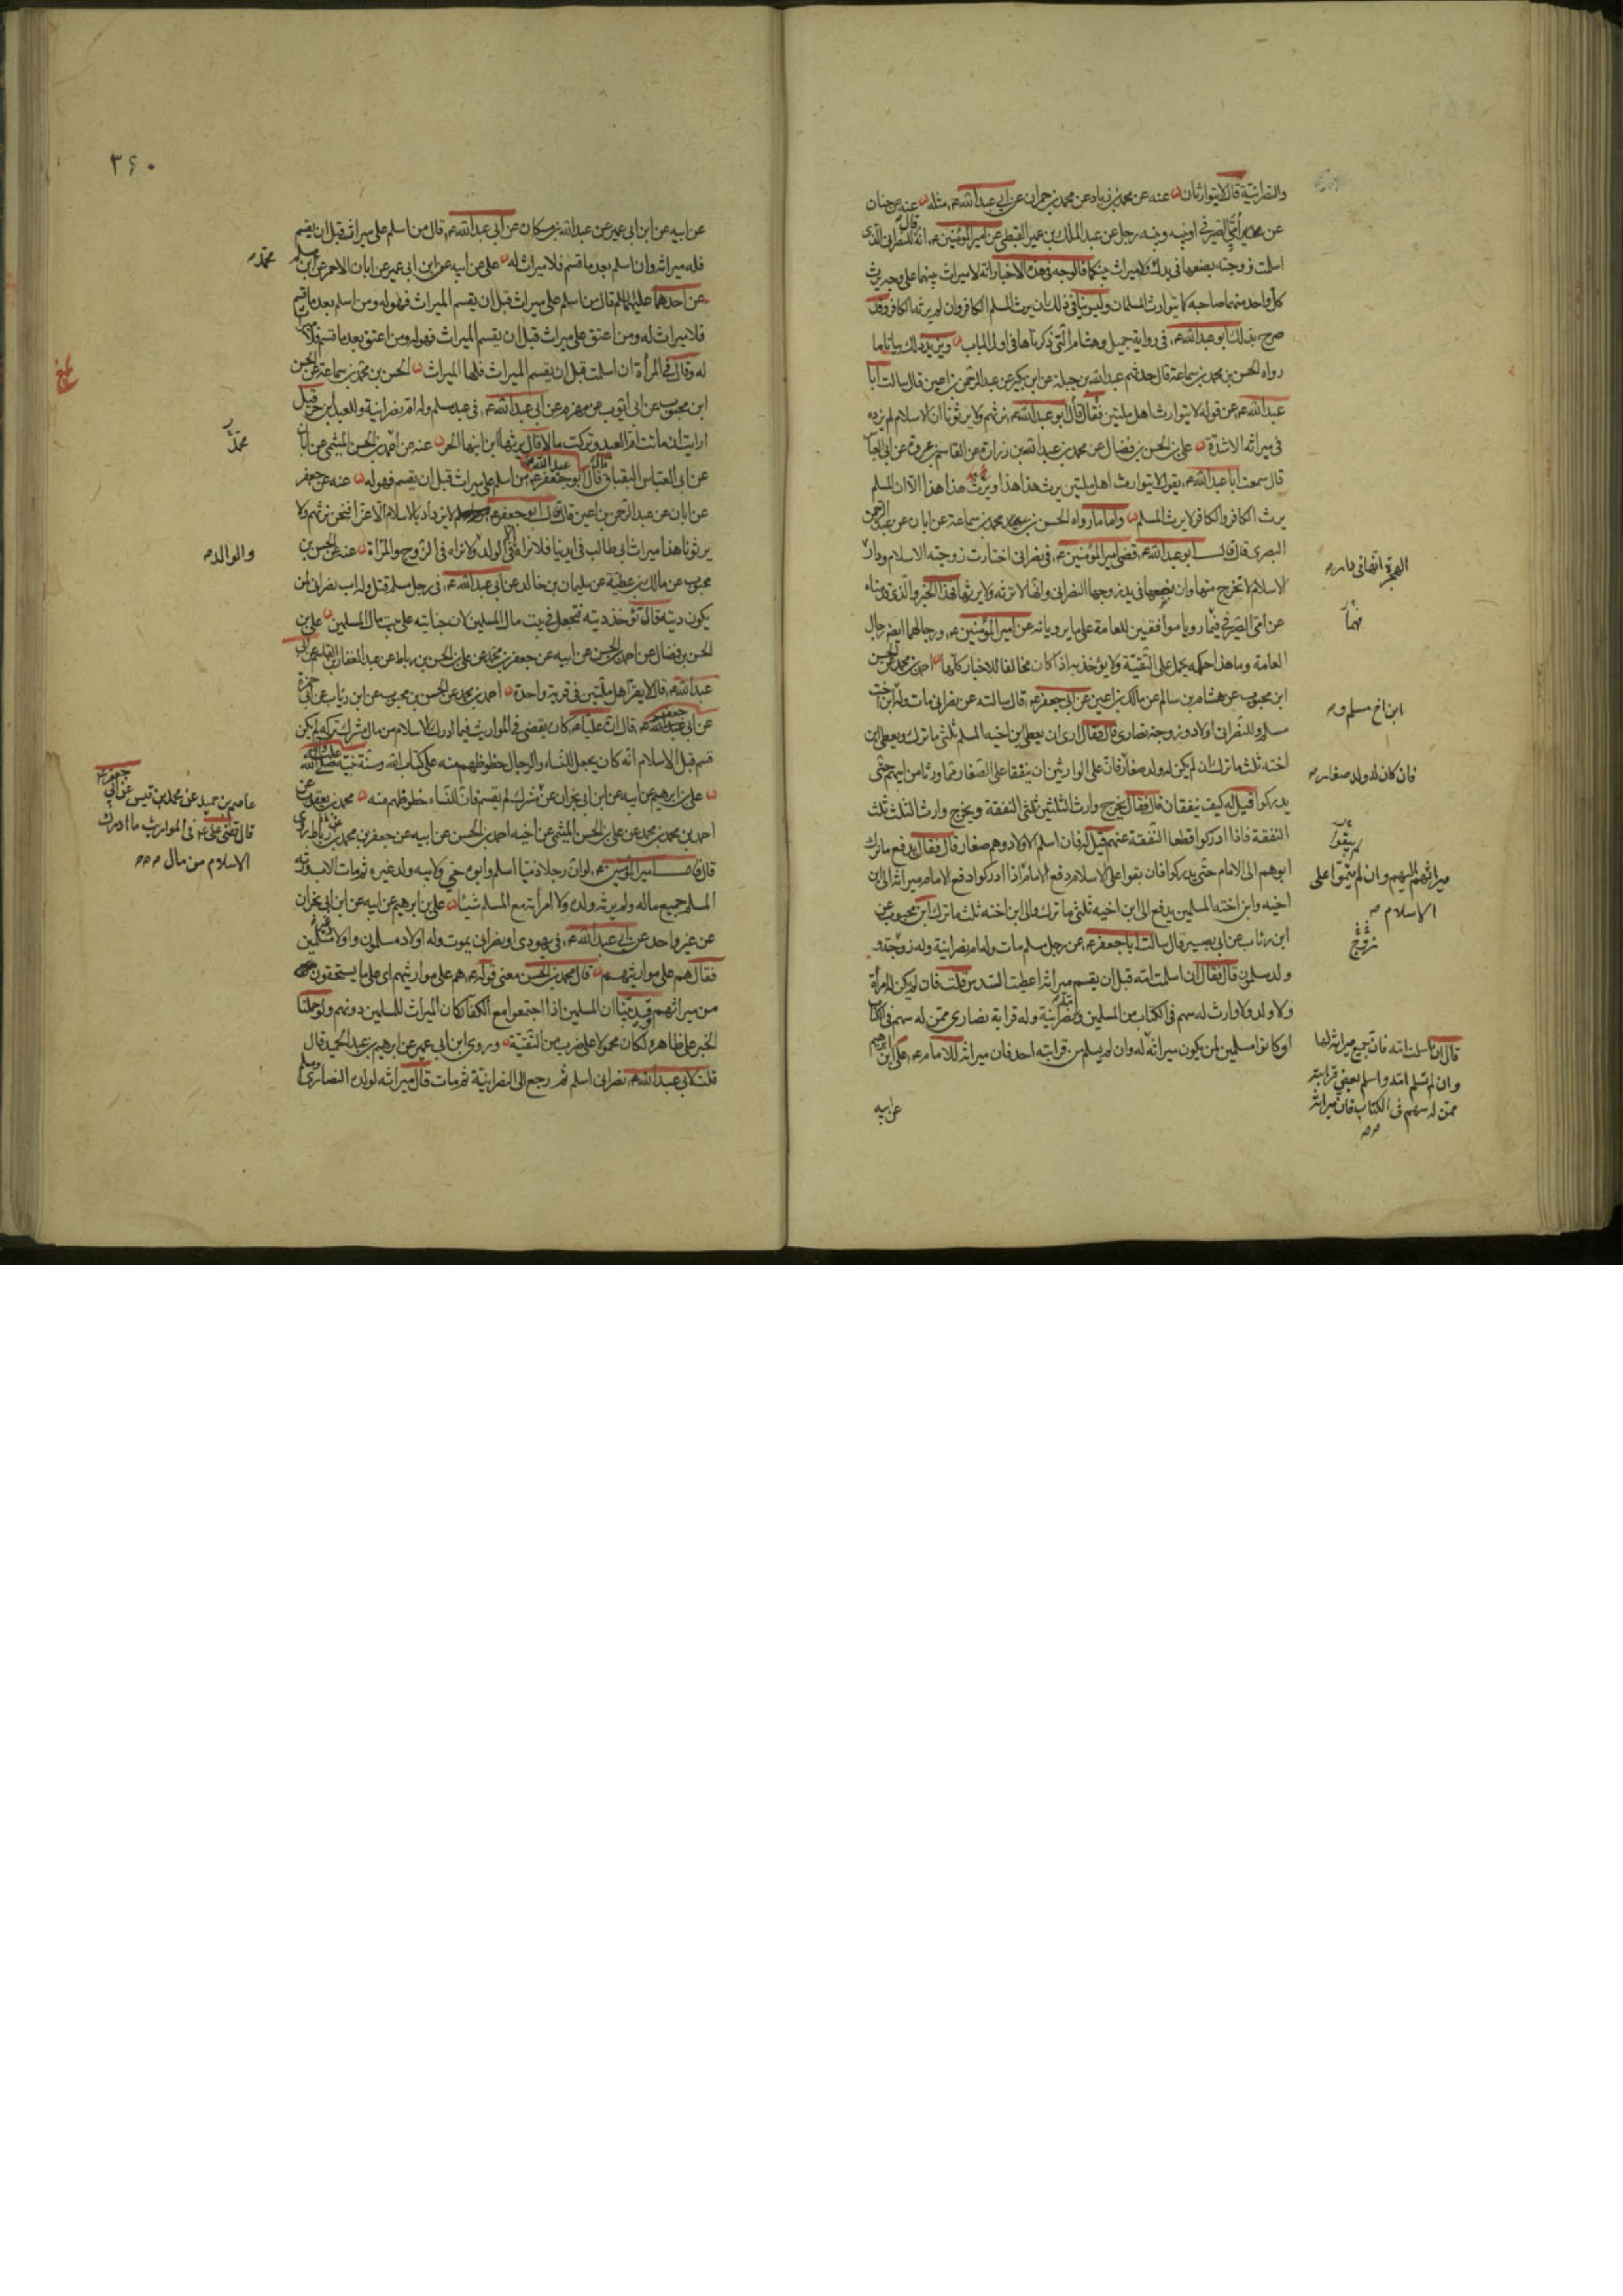 والنصرانية قال لا يتوارثان عنه عن محمد بن زياد عن محمد بن حمران عن ابي عبد الله ع مثله عنه عن حنان
عن امي الصيرفي او بينه وبينه رجل عن عبد الملك بن عمير القبطي عن امير المؤمنين ع انه قال للنصراني الذي
اسلمت زوجته بضعها في يدك ولا ميراث بينكما فالوجه في هذه الاخبار انه لا ميراث بينهما على وجه يرث
كل واحد منهما صاحبه كما يتوارث المسلمان وليس ينافي ذلك ان يرث المسلم الكافر وان لم يرثه الكافر وقد
صرح بذلك ابو عبد الله ع في رواية جميل وهشام التي ذكرناها في اول الباب ويزيد ذلك بيانا ما
رواه الحسن بن محمد بن سماعة قال حدثهم عبد الله بن جبلة عن ابن بكير عن عبد الرحمن بن اعين قال سالت ابا
عبد الله ع عن قوله لا يتوارث اهل ملتين فقال قال ابو عبد الله ع نرثهم ولا يرثونا ان الاسلام لم يزده
في ميراثه الا شدة علي بن الحسن بن فضال عن محمد بن عبد الله بن زرارة عن القاسم بن عروة عن ابي العباس
قال سمعت ابا عبد الله ع يقول لا يتوارث اهل ملتين يرث هذا هذا ويرث هذا هذا الا ان المسلم
يرث الكافر والكافر لا يرث المسلم واما ما رواه الحسن بن محمد بن سماعة عن ابان عن عبد الرحمن
البصري قال قال ابو عبد الله ع قضى امير المؤمنين ع في نصراني اختارت زوجته الاسلام ودار
الهجرة انها في دار
الاسلام لا تخرج منها وان بضعها في يد زوجها النصراني وانها لا ترثه ولا يرثها فهذا الخبر والذي قدمناه
عن امي الصيرفي فيما رويا موافقين للعامة على ما يرويانه عن امير المؤمنين ع ورجالهما ايضا رجال
العامة وما هذا حكمه يحمل على التقية ولا يؤخذ به اذا كان مخالفا للاخبار كلها احمد بن محمد عن الحسن
ابن محبوب عن هشام بن سالم عن مالك بن اعين عن ابي جعفر ع قال سالته عن نصراني مات وله ابن اخت
ابن اخ مسلم و
مسلم وللنصراني اولاد وزوجة نصارى قال فقال ارى ان يعطى ابن اخيه المسلم ثلثي ما ترك ويعطى ابن
اخته ثلث ما ترك ان لم يكن له ولد صغار فان على الوارثين ان ينفقا على الصغار مما ورثا من ابيهم حتى
فان كان له ولد صغار
يدركوا قيل له كيف ينفقان قال فقال يخرج وارث الثلثين ثلثي النفقة ويخرج وارث الثلث ثلث
النفقة فاذا ادركوا قطعا النفقة عنهم قيل له فان اسلم الاولاد وهم صغار قال فقال يدفع ما ترك
ابوهم الى الامام حتى يدركوا فان بقوا على الاسلام دفع الامام اذا ادركوا دفع الامام ميراثه الى ابن
ميراثهم اليهم وان لم يبقوا على
الاسلام
اخيه وابن اخته المسلمين يدفع الى ابن اخيه ثلثي ما ترك والى ابن اخته ثلث ما ترك ابن محبوب عن
ابن رئاب عن ابي بصير قال سالت ابا جعفر ع عن رجل مسلم مات وله ام نصرانية وله زوجة و
ولد مسلمون قال فقال ان اسلمت امه قبل ان يقسم ميراثه اعطيت السدس قلت فان لم يكن له امرأة
ولا ولد ولا وارث له سهم في الكتاب من المسلمين وامه نصرانية وله قرابة نصارى ممن له سهم في الكتاب
او كانوا مسلمين لمن يكون ميراثه له وان لم يسلم من قرابته احد فان ميراثه للامام ع علي ابن ابرهيم
قال ان اسلمت امه فان جميع ميراثه لها
وان لم تسلم امه واسلم بعض قرابته
ممن له سهم في الكتاب فان ميراثه
عن ابيه
٣۶٠
عن ابيه عن ابن ابي عمير عن عبد الله بن مسكان عن ابي عبد الله ع قال من اسلم على ميراث قبل ان يقسم
فله ميراثه وان اسلم بعد ما قسم فلا ميراث له علي عن ابيه عن ابن ابي عمير عن ابان الاحمر عن محمد بن مسلم
عن احدهما عليهما السلم قال من اسلم على ميراث قبل ان يقسم الميراث فهو له ومن اسلم بعد ما قسم
فلا ميراث له ومن اعتق على ميراث قبل ان يقسم الميراث فهو له ومن اعتق بعد ما قسم فلا ميراث
له وقال في المرأة ان اسلمت قبل ان يقسم الميراث فلها الميراث الحسن بن محمد بن سماعة عن الحسن
ابن محبوب عن ابي ايوب عن مهزم عن ابي عبد الله ع في عبد مسلم وله ام نصرانية وللعبد ابن حر قيل
ارايت ان ماتت ام العبد وتركت مالا قال يرثها ابن ابنها الحر عنه عن احمد بن الحسن الميثمي عن ابان
عن ابي العباس البقباق قال قال ابو عبد الله ع من اسلم على ميراث قبل ان يقسم فهو له عنه عن جعفر
عن ابان عن عبد الرحمن بن اعين قال قال ابو جعفر ع لم يزدد بالاسلام الا عزا فنحن نرثهم ولا
يرثونا هذا ميراث ابي طالب في ايدينا فلا نراه الا في الولد ولا نراه في الزوج والمرأة عنه عن الحسن بن
والوالد
محبوب عن مالك بن عطية عن سليمان بن خالد عن ابي عبد الله ع في رجل مسلم قتل وله اب نصراني لمن
يكون ديته قال تؤخذ ديته فتجعل في بيت مال المسلمين لان جنايته على بيت مال المسلمين علي بن
الحسن بن فضال عن احمد بن الحسن عن ابيه عن جعفر بن محمد عن علي بن الحسن بن رباط عن عبد الغفار بن القسم عن ابي
عبد الله ع قال لا يقر اهل ملتين في قرية واحدة احمد بن محمد عن الحسن بن محبوب عن ابن رياب عن ابي حمزة
عن ابي جعفر ع قال ان عليا ع كان يقضي في المواريث فيما ادرك الاسلام من مال مشرك تركه لم يكن
قسم قبل الاسلام انه كان يجعل للنساء والرجال حظوظهم منه على كتاب الله وسنة نبيه صلى الله عليه وآله
علي بن ابرهيم عن ابيه عن ابن ابي نجران عن مشرك لم يقسم فان للنساء حظوظهم منه محمد بن يعقوب عن
عاصم بن حميد عن محمد بن قيس عن ابي جعفر ع
قال قضى علي ع في المواريث ما ادرك
الاسلام من مال
احمد بن محمد بن محمد عن علي بن الحسن الميثمي عن اخيه احمد بن الحسن عن ابيه عن جعفر بن محمد عن ابن رباط
قال قال امير المؤمنين ع لو ان رجلا ذميا اسلم وابوه حي ولابيه ولد غيره ثم مات الاب ورثه
المسلم جميع ماله ولم يرثه ولده ولا امرأته مع المسلم شيئا علي بن ابرهيم عن ابيه عن ابن ابي نجران
عن غير واحد عن ابي عبد الله ع في يهودي او نصراني يموت وله اولاد مسلمون واولاد غير مسلمين
فقال هم على مواريثهم قال محمد بن الحسن معنى قوله ع هم على مواريثهم اي على ما يستحقون
من ميراثهم وقد بينا ان المسلمين اذا اجتمعوا مع الكفار كان الميراث للمسلمين دونهم ولو حملنا
الخبر على ظاهره لكان محمولا على ضرب من التقية وروى ابن ابي عمير عن ابرهيم بن عبد الحميد قال
قلت لابي عبد الله ع نصراني اسلم ثم رجع الى النصرانية ثم مات قال ميراثه لولده النصارى ومسلم